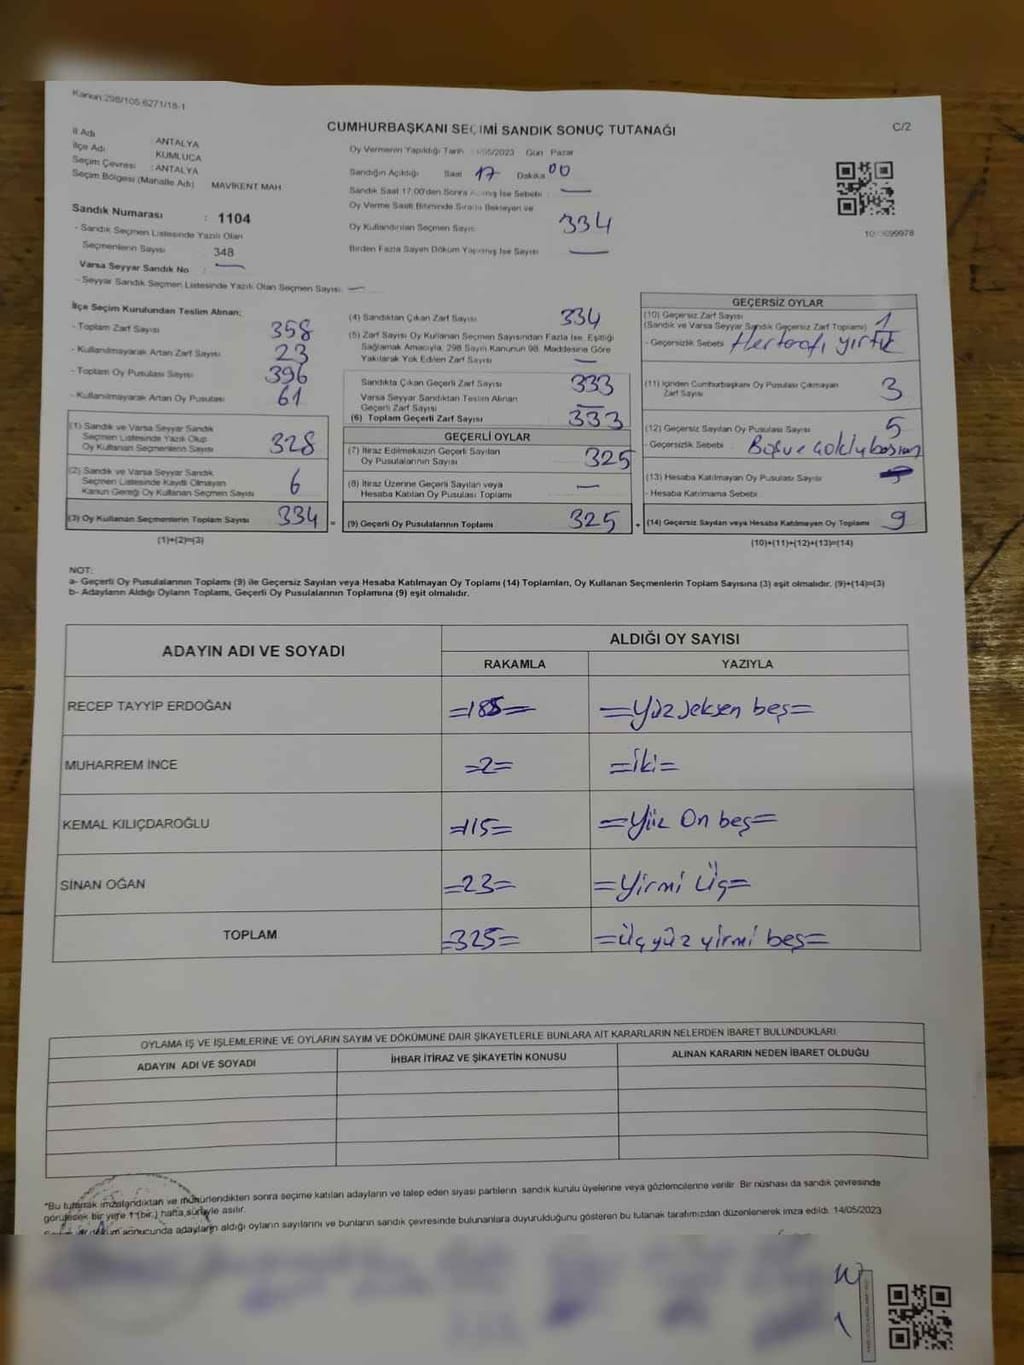 Kanun:298/105 6271/18-1
CUMHURBAŞKANI SEÇİMİ SANDIK SONUÇ TUTANAĞI
C/2
İl Adı ANTALYA
İlçe Adı KUMLUCA
Seçim Çevresi : ANTALYA
Seçim Bölgesi (Mahalle Adı) MAVİKENT MAH
Sandık Numarası : 1104
- Sandık Seçmen Listesinde Yazılı Olan
Seçmenlerin Sayısı 348
Varsa Seyyar Sandık No : —
- Seyyar Sandık Seçmen Listesinde Yazılı Olan Seçmen Sayısı —
Oy Vermenin Yapıldığı Tarih /05/2023 Gün Pazar
Sandığın Açıldığı Saat 17 Dakika 00
Sandık Saat 17:00'den Sonra İse Sebebi —
Oy Verme Saati Bitiminde Sırada Bekleyen ve
Oy Kullandırılan Seçmen Sayısı 334
Birden Fazla Sayım Döküm Yapılmış İse Sayısı —
İlçe Seçim Kurulundan Teslim Alınan;
- Toplam Zarf Sayısı 358
- Kullanılmayarak Artan Zarf Sayısı 23
- Toplam Oy Pusulası Sayısı 396
- Kullanılmayarak Artan Oy Pusulası 61
(1) Sandık ve Varsa Seyyar Sandık
Seçmen Listesinde Yazılı Olup
Oy Kullanan Seçmenlerin Sayısı 328
(2) Sandık ve Varsa Seyyar Sandık
Seçmen Listesinde Kaydı Olmayan
Kanun Gereği Oy Kullanan Seçmen Sayısı 6
(3) Oy Kullanan Seçmenlerin Toplam Sayısı 334
(1)+(2)=(3)
(4) Sandıktan Çıkan Zarf Sayısı 334
(5) Zarf Sayısı Oy Kullanan Seçmen Sayısından Fazla İse, Eşitliği
Sağlamak Amacıyla, 298 Sayılı Kanunun 98. Maddesine Göre
Yakılarak Yok Edilen Zarf Sayısı —
Sandıkta Çıkan Geçerli Zarf Sayısı 333
Varsa Seyyar Sandıktan Teslim Alınan
Geçerli Zarf Sayısı —
(6) Toplam Geçerli Zarf Sayısı 333
GEÇERLİ OYLAR
(7) İtiraz Edilmeksizin Geçerli Sayılan
Oy Pusulalarının Sayısı 325
(8) İtiraz Üzerine Geçerli Sayılan veya
Hesaba Katılan Oy Pusulası Toplamı —
= (9) Geçerli Oy Pusulalarının Toplamı 325
GEÇERSİZ OYLAR
(10) Geçersiz Zarf Sayısı
(Sandık ve Varsa Seyyar Sandık Geçersiz Zarf Toplamı) 1
- Geçersizlik Sebebi Her tarafı yırtık
(11) İçinden Cumhurbaşkanı Oy Pusulası Çıkmayan
Zarf Sayısı 3
(12) Geçersiz Sayılan Oy Pusulası Sayısı 5
- Geçersizlik Sebebi Boş ve çoklu basım
(13) Hesaba Katılmayan Oy Pusulası Sayısı
- Hesaba Katılmama Sebebi
+ (14) Geçersiz Sayılan veya Hesaba Katılmayan Oy Toplamı 9
(10)+(11)+(12)+(13)=(14)
NOT:
a- Geçerli Oy Pusulalarının Toplamı (9) ile Geçersiz Sayılan veya Hesaba Katılmayan Oy Toplamı (14) Toplamları, Oy Kullanan Seçmenlerin Toplam Sayısına (3) eşit olmalıdır. (9)+(14)=(3)
b- Adayların Aldığı Oyların Toplamı, Geçerli Oy Pusulalarının Toplamına (9) eşit olmalıdır.
ADAYIN ADI VE SOYADI
ALDIĞI OY SAYISI
RAKAMLA YAZIYLA
RECEP TAYYİP ERDOĞAN =185= =Yüz seksen beş=
MUHARREM İNCE =2= =iki=
KEMAL KILIÇDAROĞLU =115= =Yüz On beş=
SİNAN OĞAN =23= =Yirmi Üç=
TOPLAM =325= =Üçyüz yirmi beş=
OYLAMA İŞ VE İŞLEMLERİNE VE OYLARIN SAYIM VE DÖKÜMÜNE DAİR ŞİKAYETLERLE BUNLARA AİT KARARLARIN NELERDEN İBARET BULUNDUKLARI
ADAYIN ADI VE SOYADI İHBAR İTİRAZ VE ŞİKAYETİN KONUSU ALINAN KARARIN NEDEN İBARET OLDUĞU
*Bu tutanak imzalandıktan ve mühürlendikten sonra seçime katılan adayların ve talep eden siyasi partilerin sandık kurulu üyelerine veya gözlemcilerine verilir. Bir nüshası da sandık çevresinde
görülecek bir yere 1 (bir) hafta süreyle asılır.
sonucunda adayların aldığı oyların sayılarını ve bunların sandık çevresinde bulunanlara duyurulduğunu gösteren bu tutanak tarafımızdan düzenlenerek imza edildi. 14/05/2023